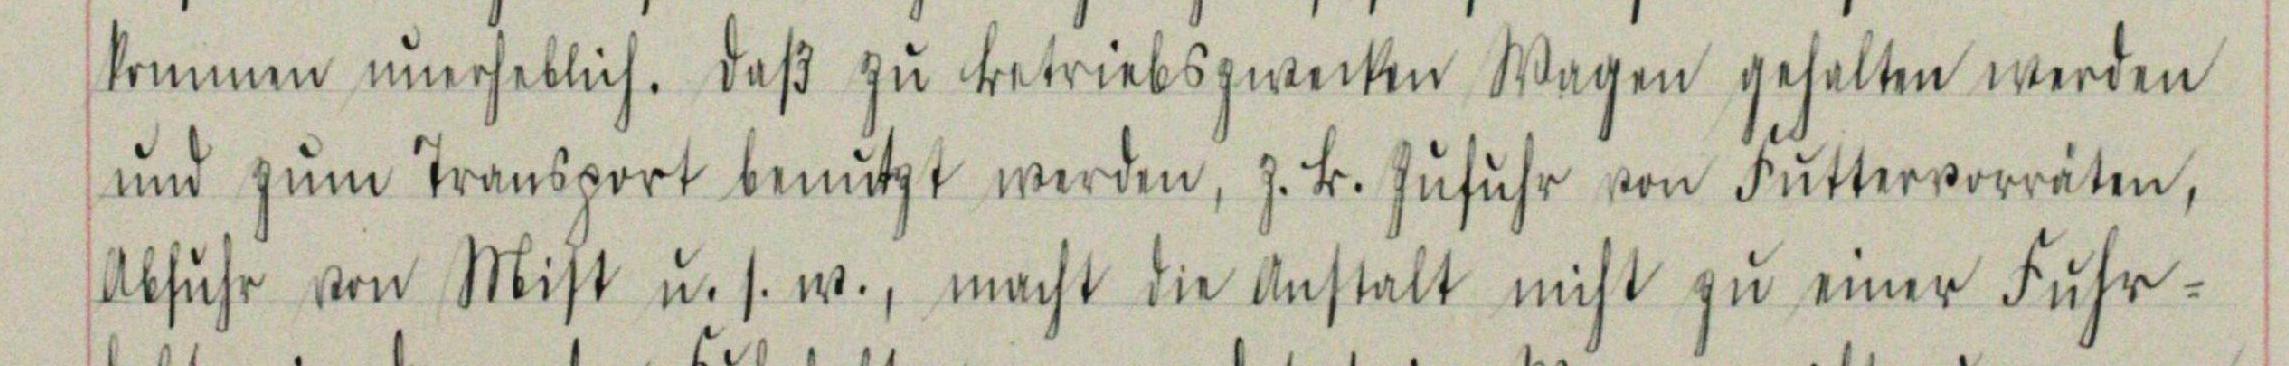 kommen unerheblich. Daß zu Betriebszwecken Wagen gehalten werden
und zum Transport benutzt werden, z. B. Zufuhr von Futtervorräten,
Abfuhr von Mist u. s. w., macht die Anstalt nicht zu einer Fuhr-